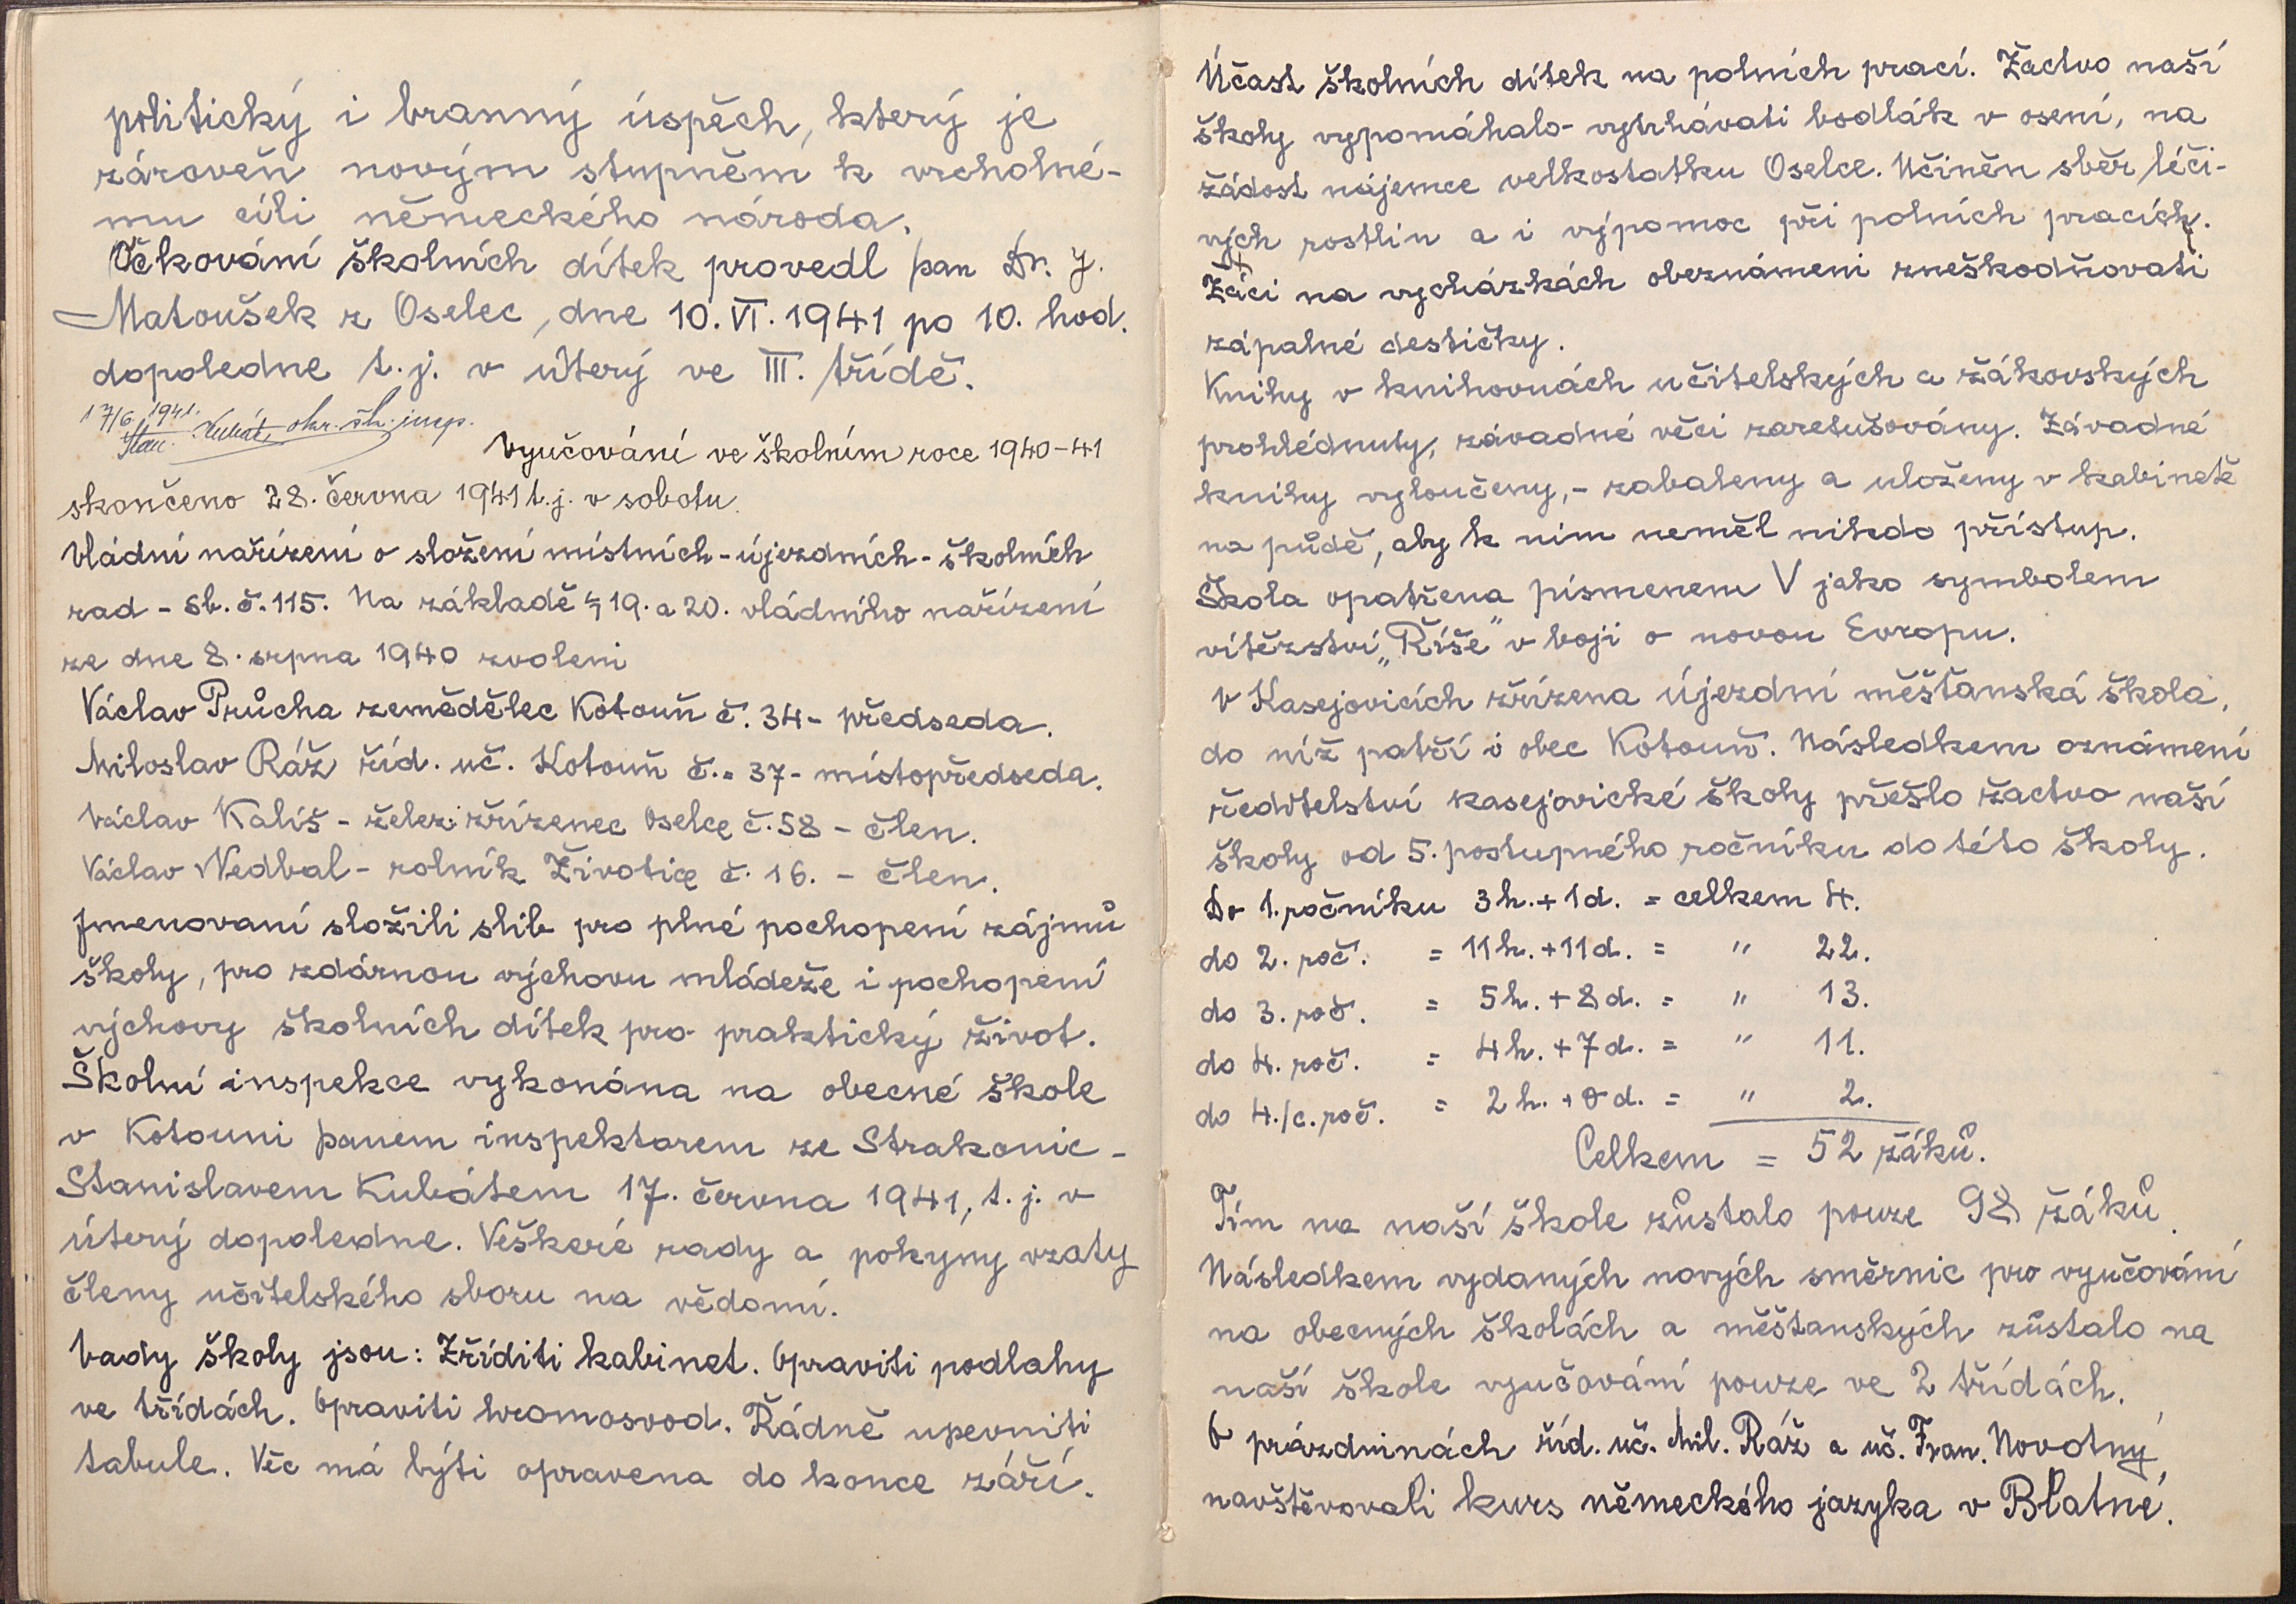 politický i branný úspěch, který je
zároveň novým stupněm k vrcholné-
mu cíli německého národa.
Očkování školních dítek provedl pan Dr. J.
Matoušek z Oselec, dne 10. VI. 1941 po 10. hod.
dopoledne t. j. v úterý ve III. třídě.
17/6 1941.
Stan. Kubát, okr. šk. insp.
Vyučování ve školním roce 1940-41
skončeno 28. června 1941 t. j. v sobotu.
Vládní nařízení o složení místních - újezdních - školních
rad - Sb. č. 115. Na základě § 19. a 20. vládního nařízení
ze dne 8. srpna 1940 zvoleni
Václav Průcha zemědělec Kotouň č. 34 - předseda.
Miloslav Ráž říd. uč. Kotouň č. 37 - místopředseda.
Václav Kališ - želez. zřízenec Oselce č. 58 - člen.
Václav Nedbal - rolník Životice č. 16. - člen.
Jmenovaní složili slib pro plné pochopení zájmů
školy, pro zdárnou výchovu mládeže i pochopení
výchovy školních dítek pro praktický život.
Školní inspekce vykonána na obecné škole
v Kotouni panem inspektorem ze Strakonic -
Stanislavem Kubátem 17. června 1941, t. j. v
úterý dopoledne. Veškeré rady a pokyny vzaty
členy učitelského sboru na vědomí.
Vady školy jsou: Zříditi kabinet. Opraviti podlahy
ve třídách. Opraviti hromosvod. Řádně upevniti
tabule. Věc má býti opravena do konce září.
Účast školních dítek na polních prací. Žactvo naší
školy vypomáhalo - vytrhávati bodlák v osení, na
žádost nájemce velkostatku Oselce. Učiněn sběr léči-
vých rostlin a i výpomoc při polních pracích.
Žáci na vycházkách obeznámeni zneškodňovati
zápalné destičky.
Knihy v knihovnách učitelských a žákovských
prohlédnuty, závadné věci zaretušovány. Závadné
knihy vyloučeny, - zabaleny a uloženy v kabinetě
na půdě, aby k nim neměl nikdo přístup.
Škola opatřena písmenem V jako symbolem
vítězství „Říše" v boji o novou Evropu.
V Kasejovicích zřízena újezdní měšťanská škola,
do níž patří i obec Kotouň. Následkem oznámení
ředitelství kasejovické školy přešlo žactvo naší
školy od 5. postupného ročníku do této školy.
Do 1. ročníku 3 h. + 1 d. = celkem 4.
do 2. roč. = 11 h. + 11 d. = " 22.
do 3. roč. = 5 h. + 8 d. = " 13.
do 4. roč. = 4 h. + 7 d. = " 11.
do 4./c. roč. = 2 h. + 0 d. = " 2.
Celkem = 52 žáků.
Tím na naší škole zůstalo pouze 98 žáků.
Následkem vydaných nových směrnic pro vyučování
na obecných školách a měšťanských zůstalo na
naší škole vyučování pouze ve 2 třídách.
O prázdninách říd. uč. Mil. Ráž a uč. Fran. Novotný
navštěvovali kurs německého jazyka v Blatné.